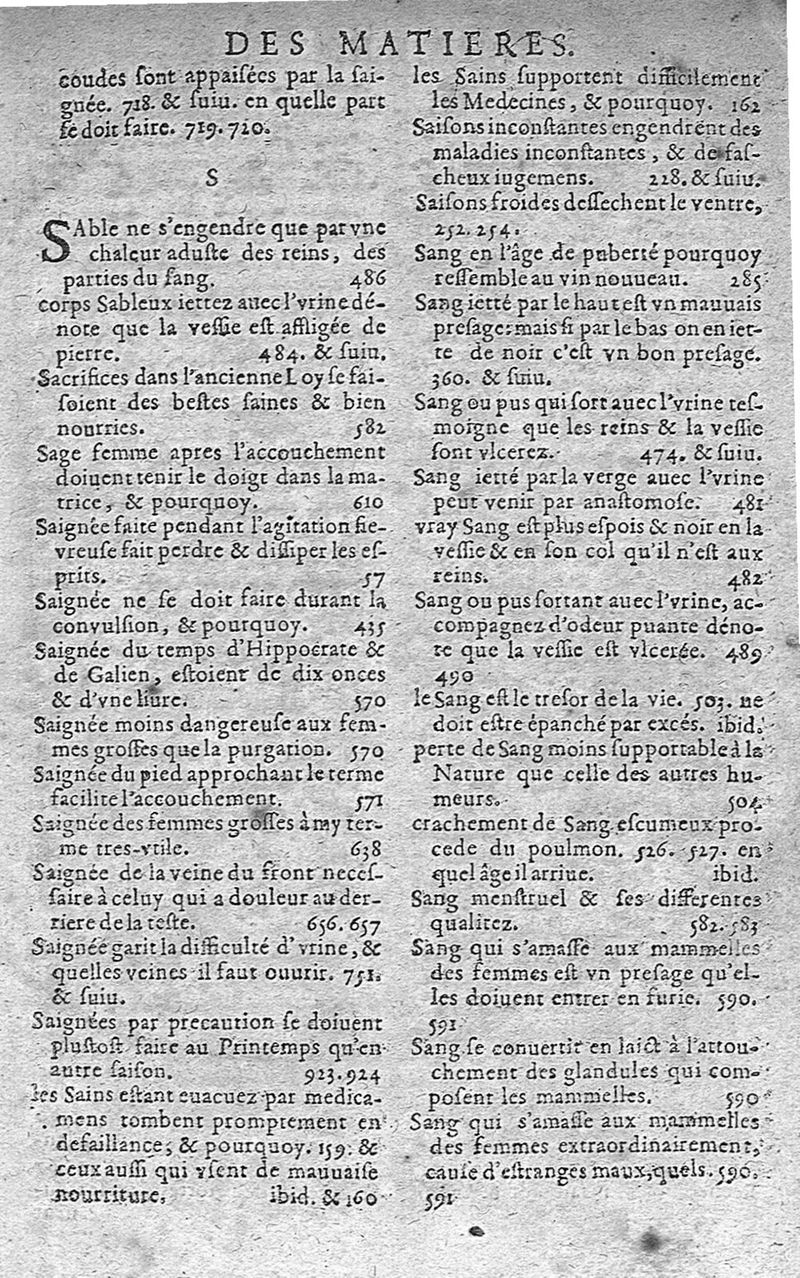 DES MATIERES.
coudes ſont appaiſées par la ſai-
gnée. 718. & ſuiu. en quelle part
ſe doit faire. 719. 720.
S
SAble ne s'engendre que par vne
chaleur aduſte des reins, des
parties du ſang. 486
corps Sableux iettez auec l'vrine dé-
note que la veſſie eſt affligée de
pierre. 484. & ſuiu.
Sacrifices dans l'ancienne Loy ſe fai-
ſoient des beſtes ſaines & bien
nourries. 582
Sage femme apres l'accouchement
doiuent tenir le doigt dans la ma-
trice, & pourquoy. 610
Saignée faite pendant l'agitation fie-
vreuſe fait perdre & diſſiper les eſ-
prits. 57
Saignée ne ſe doit faire durant la
convulſion, & pourquoy. 435
Saignée du temps d'Hippocrate &
de Galien, eſtoient de dix onces
& d'vne liure. 570
Saignée moins dangereuſe aux fem-
mes groſſes que la purgation. 570
Saignée du pied approchant le terme
facilite l'accouchement. 571
Saignée des femmes groſſes à my ter-
me tres-vtile. 638
Saignée de la veine du front neceſ-
ſaire à celuy qui a douleur au der-
riere de la teſte. 656. 657
Saignée garit la difficulté d'vrine, &
quelles veines il faut ouurir. 751.
& ſuiu.
Saignées par precaution ſe doiuent
pluſtoſt faire au Printemps qu'en
autre ſaiſon. 923. 924
les Sains eſtant euacuez par medica-
mens tombent promptement en
defaillance, & pourquoy. 159. &
ceux auſſi qui vſent de mauuaiſe
nourriture. ibid. & 160
les Sains ſupportent difficilement
les Medecines, & pourquoy. 162
Saiſons inconſtantes engendrent des
maladies inconſtantes, & de faſ-
cheux iugemens. 228. & ſuiu.
Saiſons froides deſſechent le ventre,
252. 254.
Sang en l'âge de puberté pourquoy
reſſemble au vin nouueau. 285
Sang ietté par le haut eſt vn mauuais
preſage: mais ſi par le bas on en iet-
te de noir c'eſt vn bon preſage.
360. & ſuiu.
Sang ou pus qui ſort auec l'vrine teſ-
moigne que les reins & la veſſie
ſont vlcerez. 474. & ſuiu.
Sang ietté par la verge auec l'vrine
peut venir par anaſtomoſe. 481
vray Sang eſt plus eſpois & noir en la
veſſie & en ſon col qu'il n'eſt aux
reins. 482
Sang ou pus ſortant auec l'vrine, ac-
compagnez d'odeur puante déno-
te que la veſſie eſt vlcerée. 489
490
le Sang eſt le treſor de la vie. 503. ne
doit eſtre épanché par excés. ibid.
perte de Sang moins ſupportable à la
Nature que celle des autres hu-
meurs. 504
crachement de Sang eſcumeux pro-
cede du poulmon. 526. 527. en
quel âge il arriue. ibid.
Sang menſtruel & ſes differentes
qualitez. 582. 583
Sang qui s'amaſſe aux mammelles
des femmes eſt vn preſage qu'el-
les doiuent entrer en furie. 590.
591
Sang ſe conuertit en laict à l'attou-
chement des glandules qui com-
poſent les mammelles. 590
Sang qui s'amaſſe aux mammelles
des femmes extraordinairement,
cauſe d'eſtranges maux, quels. 590.
591